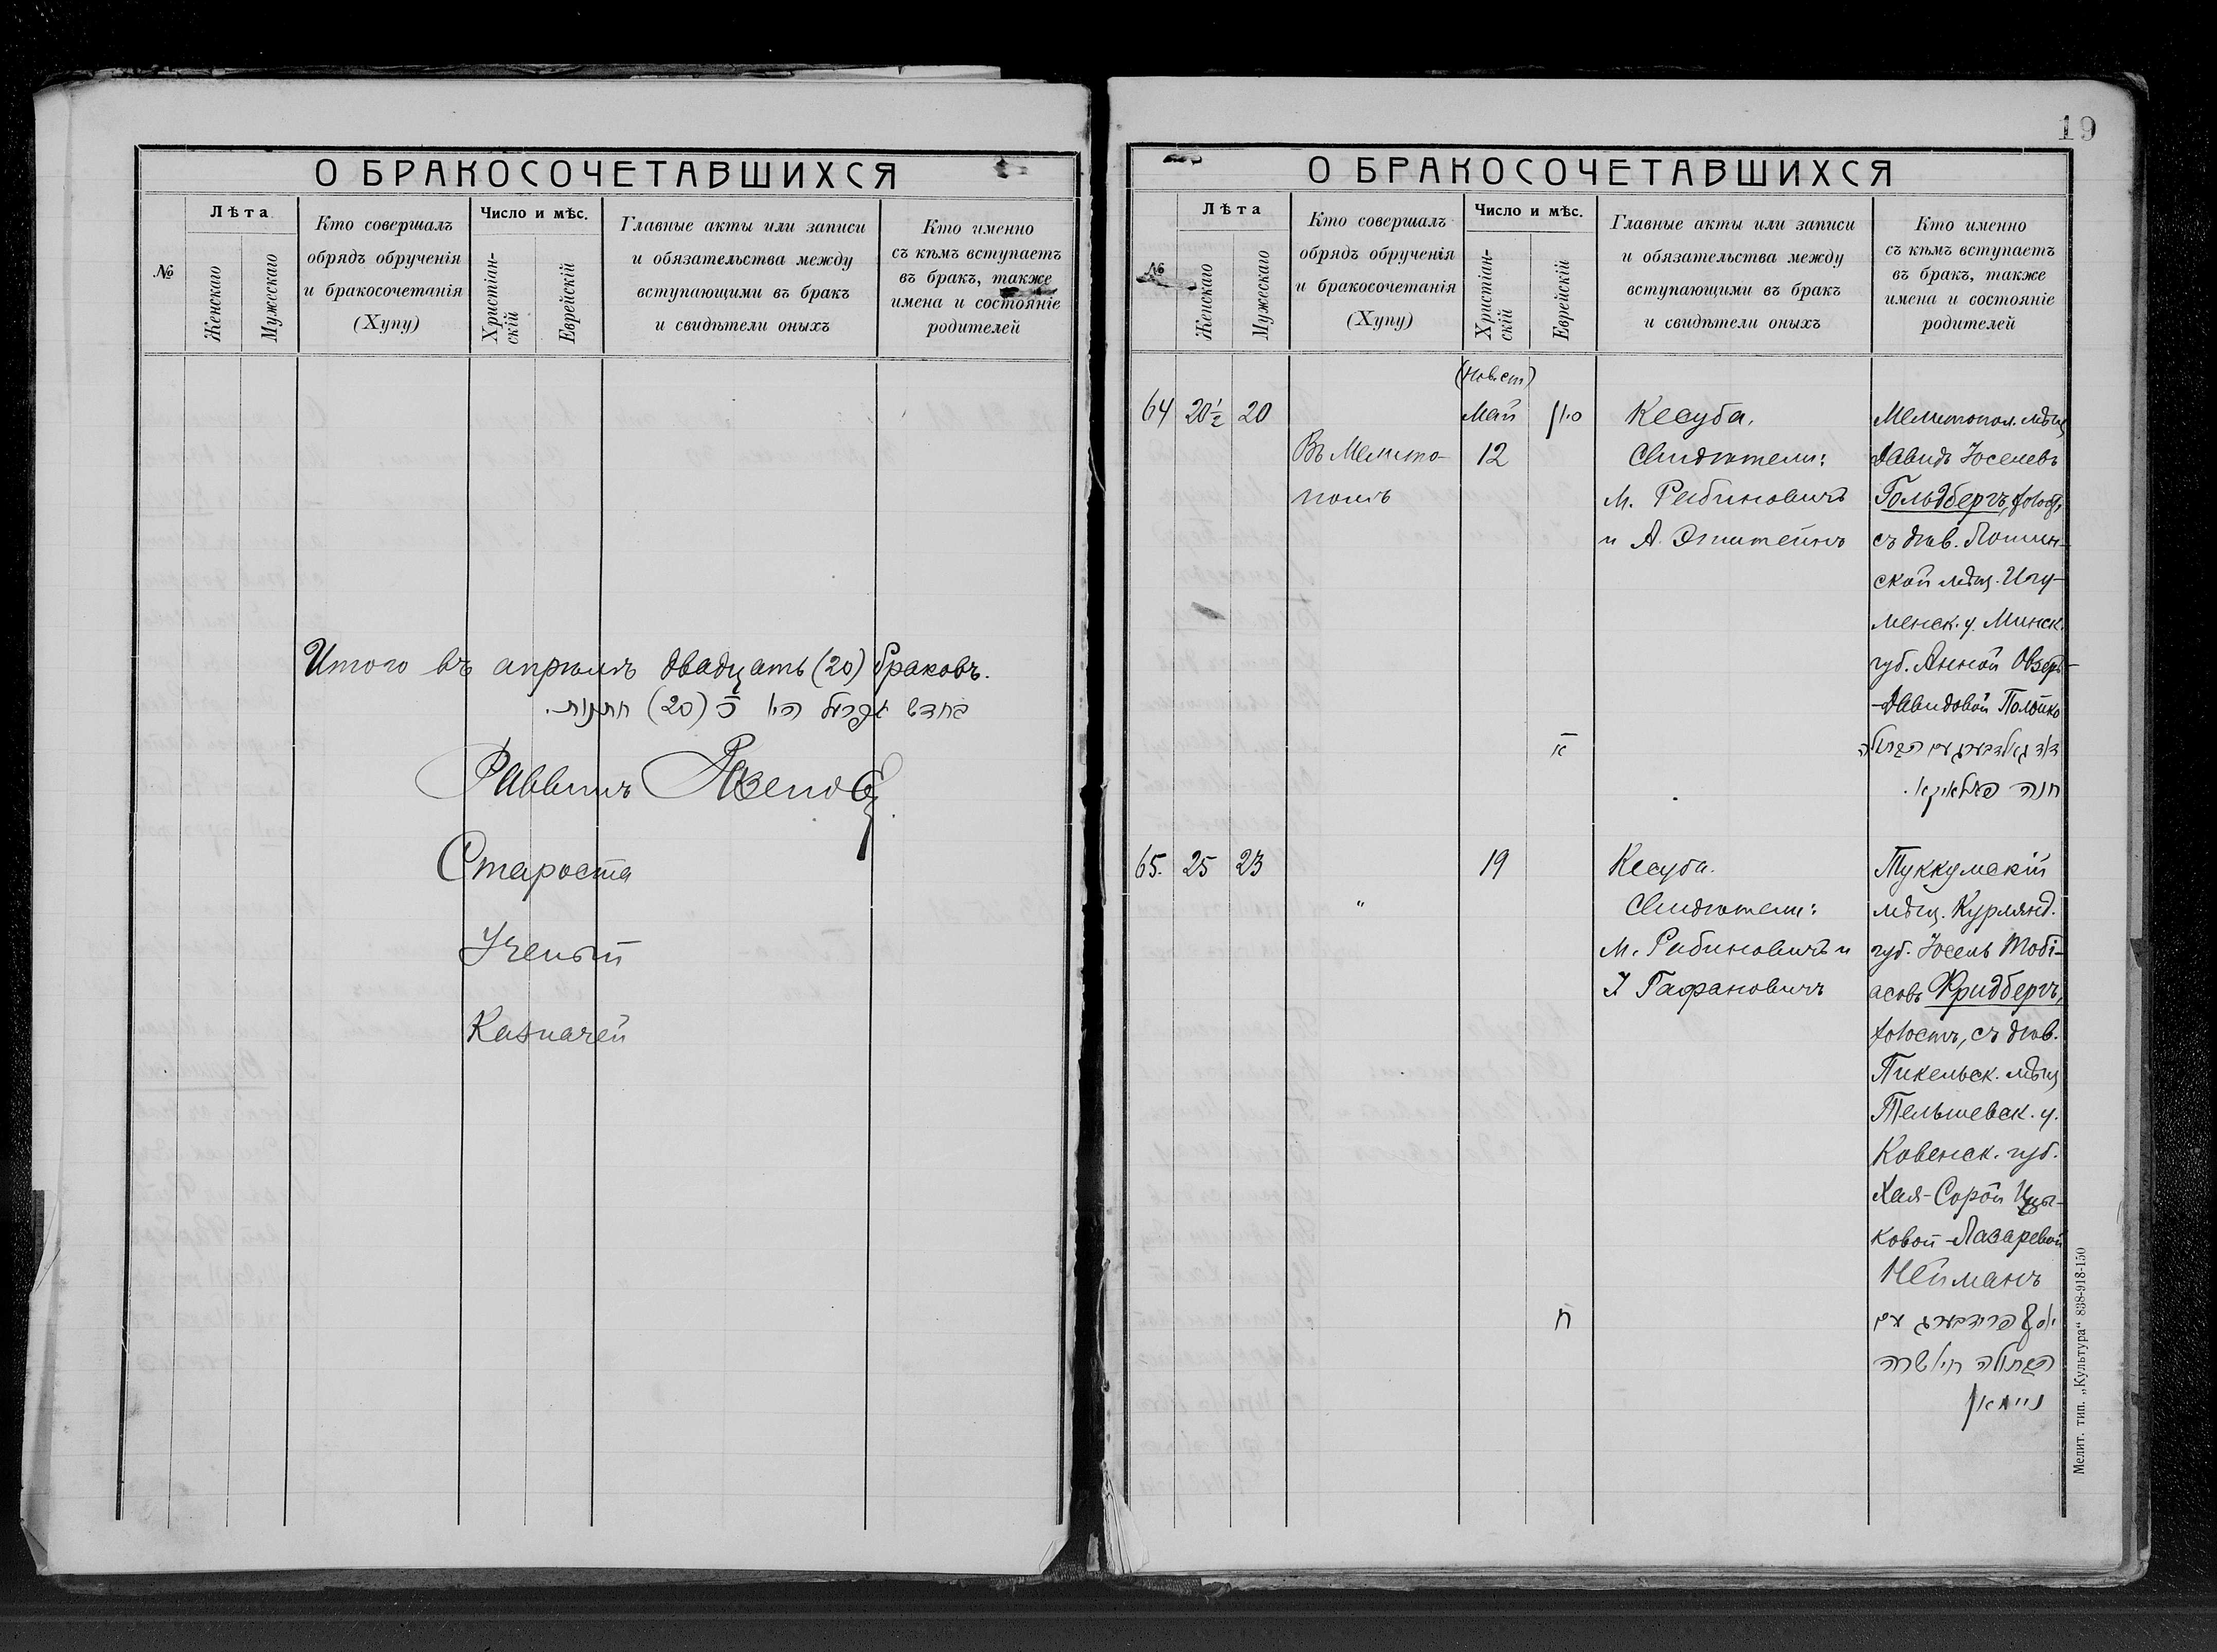 О БРАКОСОЧЕТАВШИХСЯ
№
Лѣта
Женскаго
Мужескаго
Кто совершалъ
обрядъ обрученія
и бракосочетанія
(Хупу)
Число и мѣс.
Христіан-
скій
Еврейскій
Главные акты или записи
и обязательства между
вступающими въ бракъ
и свидѣтели оныхъ
Кто именно
съ кѣмъ вступаетъ
въ бракъ, также
имена и состояніе
родителей
Итого въ апрѣлѣ двадцать (20) браковъ.
בחדש אפריל היו כ (20) חתונות.
Раввинъ
Староста
Ученый
Казначей
19
О БРАКОСОЧЕТАВШИХСЯ
№
Лѣта
Женскаго
Мужескаго
Кто совершалъ
обрядъ обрученія
и бракосочетанія
(Хупу)
Число и мѣс.
Христіан-
скій
Еврейскій
Главные акты или записи
и обязательства между
вступающими въ бракъ
и свидѣтели оныхъ
Кто именно
съ кѣмъ вступаетъ
въ бракъ, также
имена и состояніе
родителей
(нов. ст)
64 20½ 20
Май
12
סיון
א
Въ Мелито-
полѣ
Кесуба.
Свидѣтели:
М. Рабиновичъ
и А. Эпштейнъ
Мелитопол. мѣщ
Давидъ Іоселевъ
Гольдбергъ, холост,
съ дѣв.
ской мѣщ. Игу-
менск. у. Минск.
губ. Анной
-Давидовой
דוד גאלדבערג עם הבתולה
חנה
65. 25 23
"
19
ח
Кесуба.
Свидѣтели:
М. Рабиновичъ и
І Гафановичъ
Туккумскій
мѣщ. Курлянд.
губ. Іосель Тобі-
асовъ Фридбергъ,
холостъ, съ дѣв.
Пикельск. мѣщ
Тельшевск. у.
Ковенск. губ.
Хая-Сорой Ицы-
ковой-Лазаревой
Нейманъ
יוסל פרידבערג עם
הבתולה חי' שרה
ניימאן
Мелит. тип. „Культура" 838-918-150